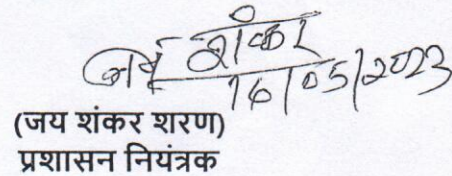 जय शंकर
16/05/2023
(जय शंकर शरण)
प्रशासन नियंत्रक